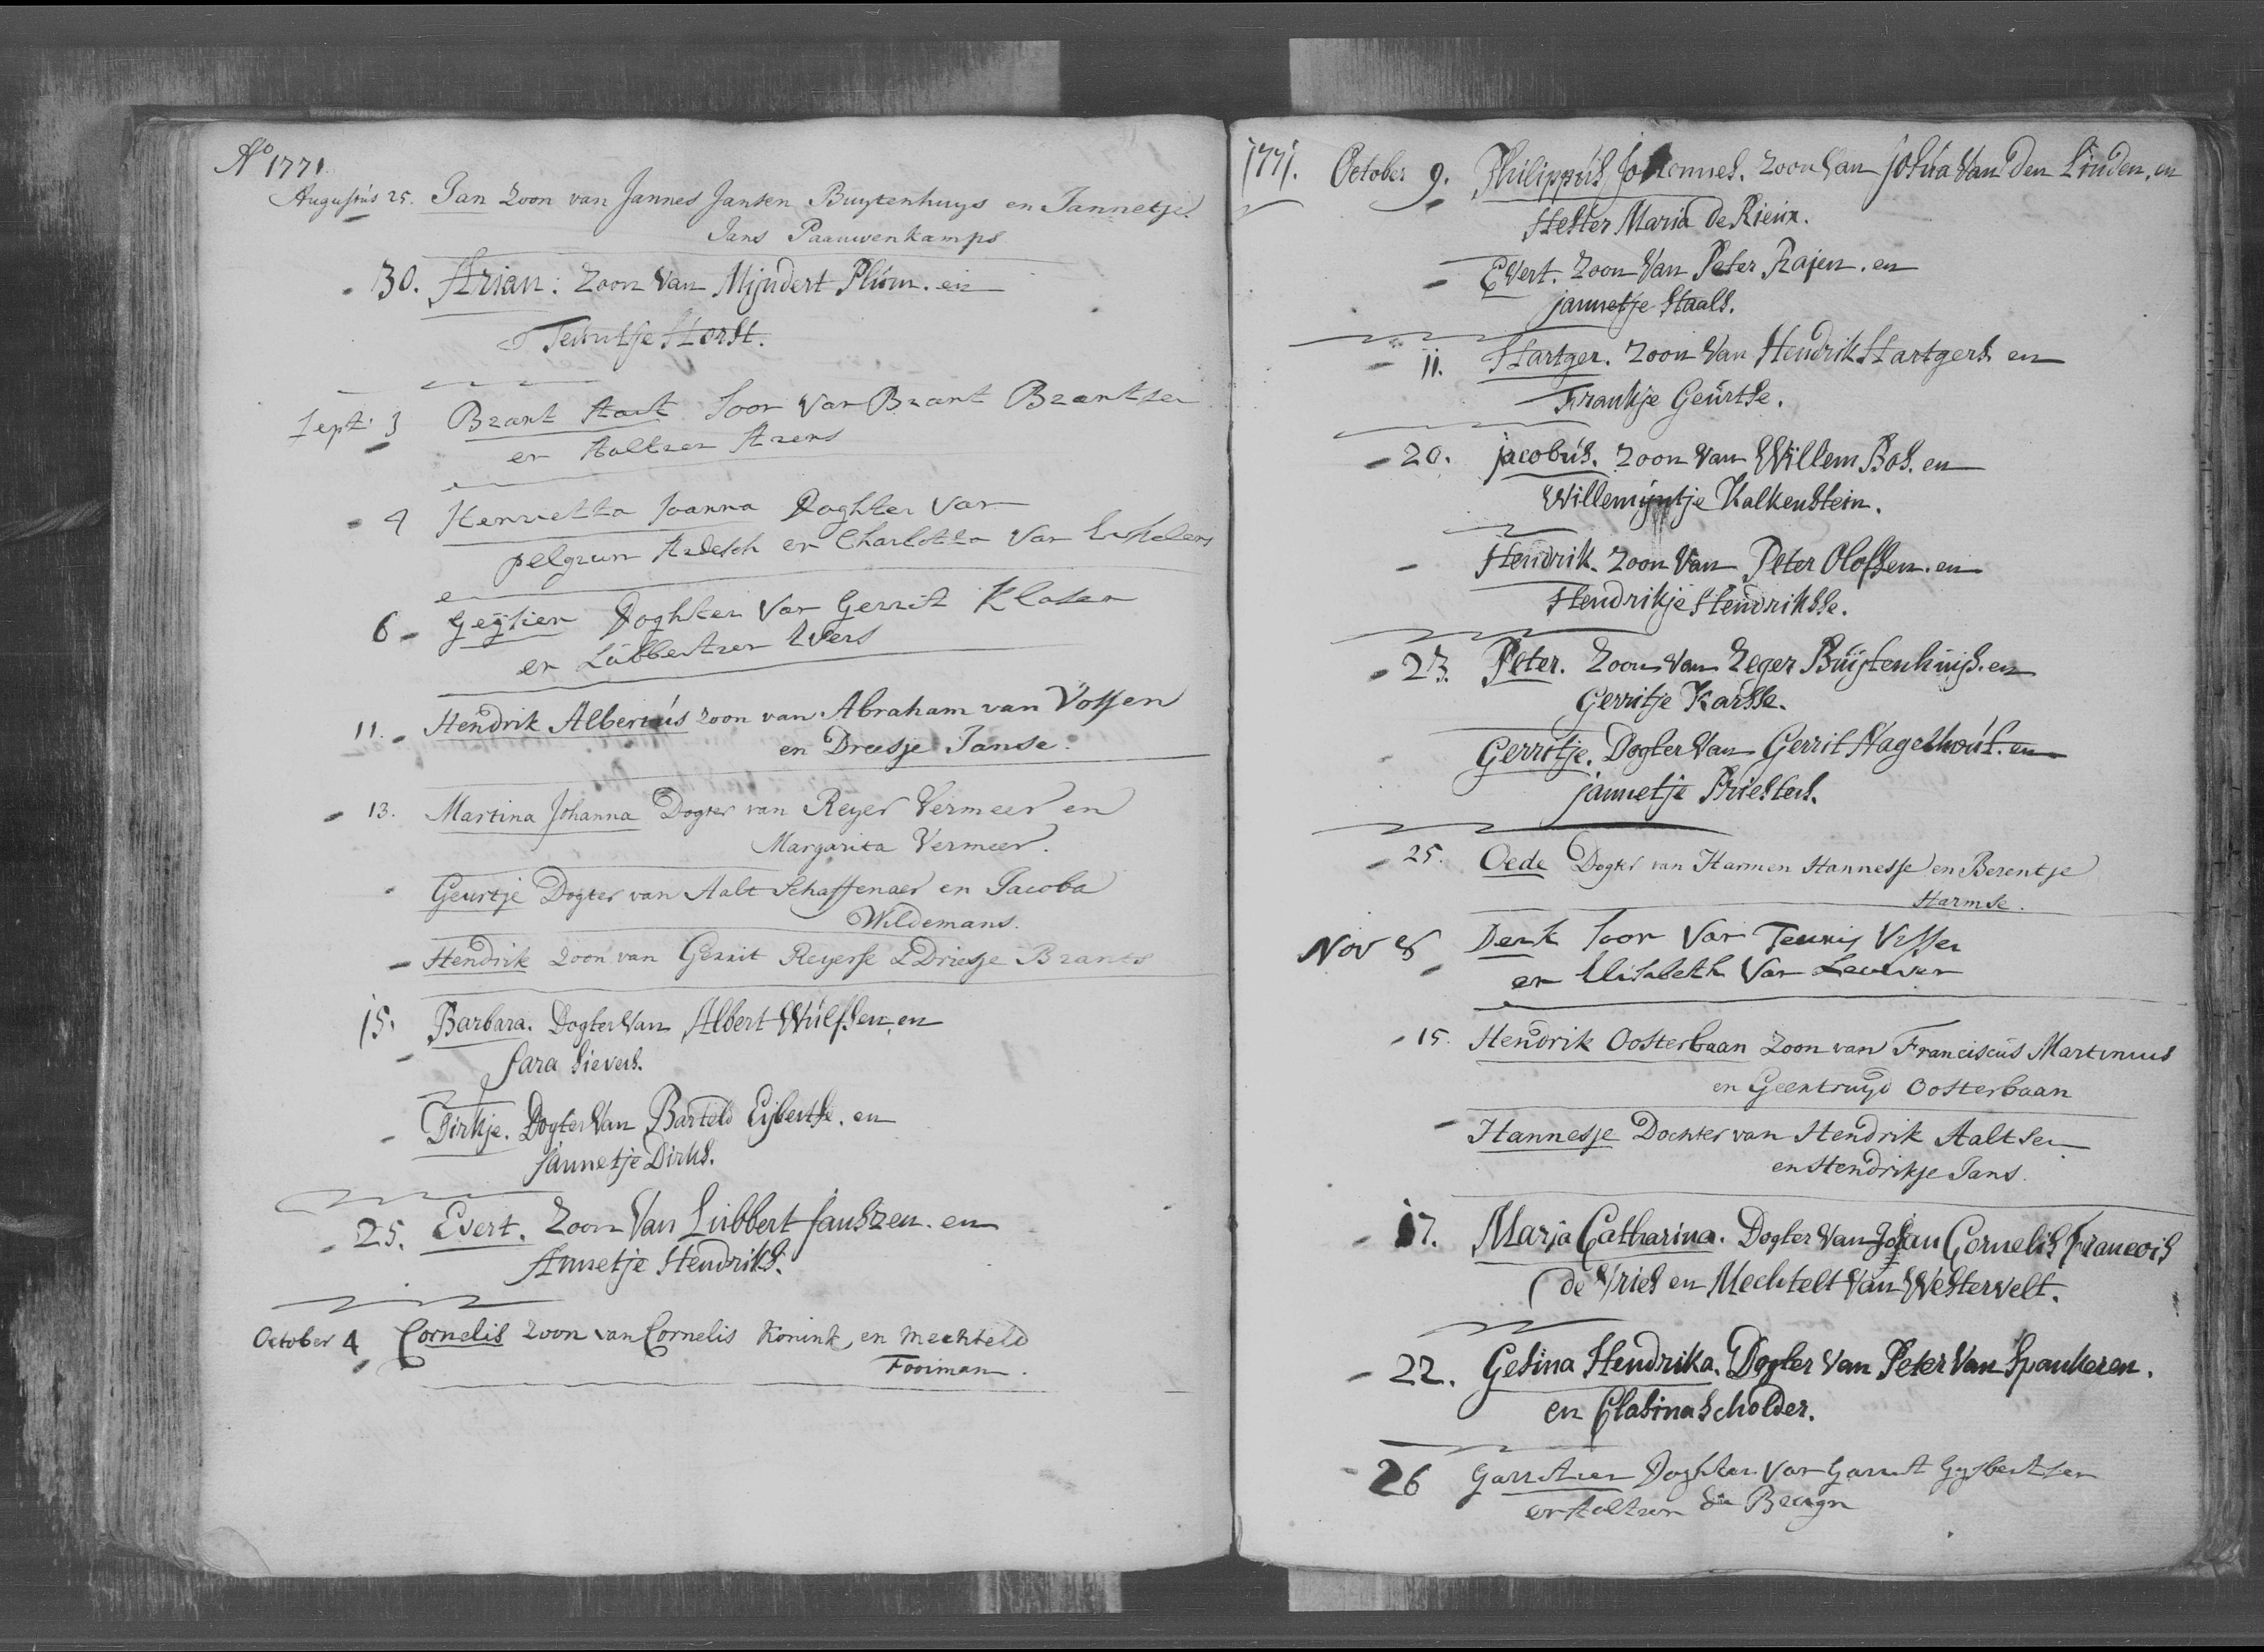 Aº 1771.
Augustus 25. Jan Zoon van Jannes Jansen Buytenhuys en Jannetje
Jans Paauwenkamps
30. Arian: Zoon Van Mijndert Plúm. en
Teúntje Horst.
Sept: 3 Brant Aart Soon van Brant Brantsen
en Aaltien Arens
4 Henrietta Joanna Doghter van
pelgrum Ardesch en Charlotta van
6 Geÿtien Doghter van Gerrit Klasen
en Lúbbertien Evers
11. Hendrik Albertús zoon van Abraham van Vossen
en Dreesje Janse.
13. Martina Johanna Dogter van Reyer Vermeer en
Margarita Vermeer.
Geurtje Dogter van Aalt Schaffenaer en Jacoba
Wildemans.
Hendrik zoon van Gerrit Reyerse & Driesje Brants
15. Barbara. Dogter Van Albert Wúlfsen, en
Sara Sievers.
Dirkje. Dogter Van Barteld Eijbertse. en
jannetje Dirks.
25. Evert. Zoon Van Lúbbert janszen. en
Annetje Hendriks.
October 4 Cornelis zoon van Cornelis Konink en mechteld
Fooiman.
1771. October 9. Philippús Johannes. zoon van josúa Van Den Linden, en
Hester Maria de Rieúx.
Evert. Zoon Van Peter Rajen. en
jannetje Staals.
11. Hartger. Zoon Van Hendrik Hartgers en
Frankje Geúrtse.
20. jacobús. Zoon Van Willem Bos. en
Willemijntje Kalkenstein.
Hendrik. Zoon Van Peter Olofsen. en
Hendrikje Hendriksse.
23. Peter. Zoon Van Zeger Búijtenhúijs. en
Gerritje Karsse.
Gerritje. Dogter Van Gerrit Nagelhoút. en
jannetje Priesters.
25. Oede Dogter van Harmen Hannesse en Berentje
Harmse.
Nov 8 Derk Soon van Teunis Visser
en Elisabeth van Leuwen
15. Hendrik Oosterbaan zoon van Franciscús Martinius
en Geertruyd Oosterbaan
Hannesje Dochter van Hendrik Aaltsen
en Hendrikje Jans.
17. Marja Catharina. Dogter Van Johan Cornelis Francois
de Vries en Mechtelt Van Westervelt.
22. Gesina Hendrika. Dogter Van Peter Van Spankeren.
en Clasina Scholder.
26 Garritien Doghter van Garrit Gysbertsen
en Aaltien